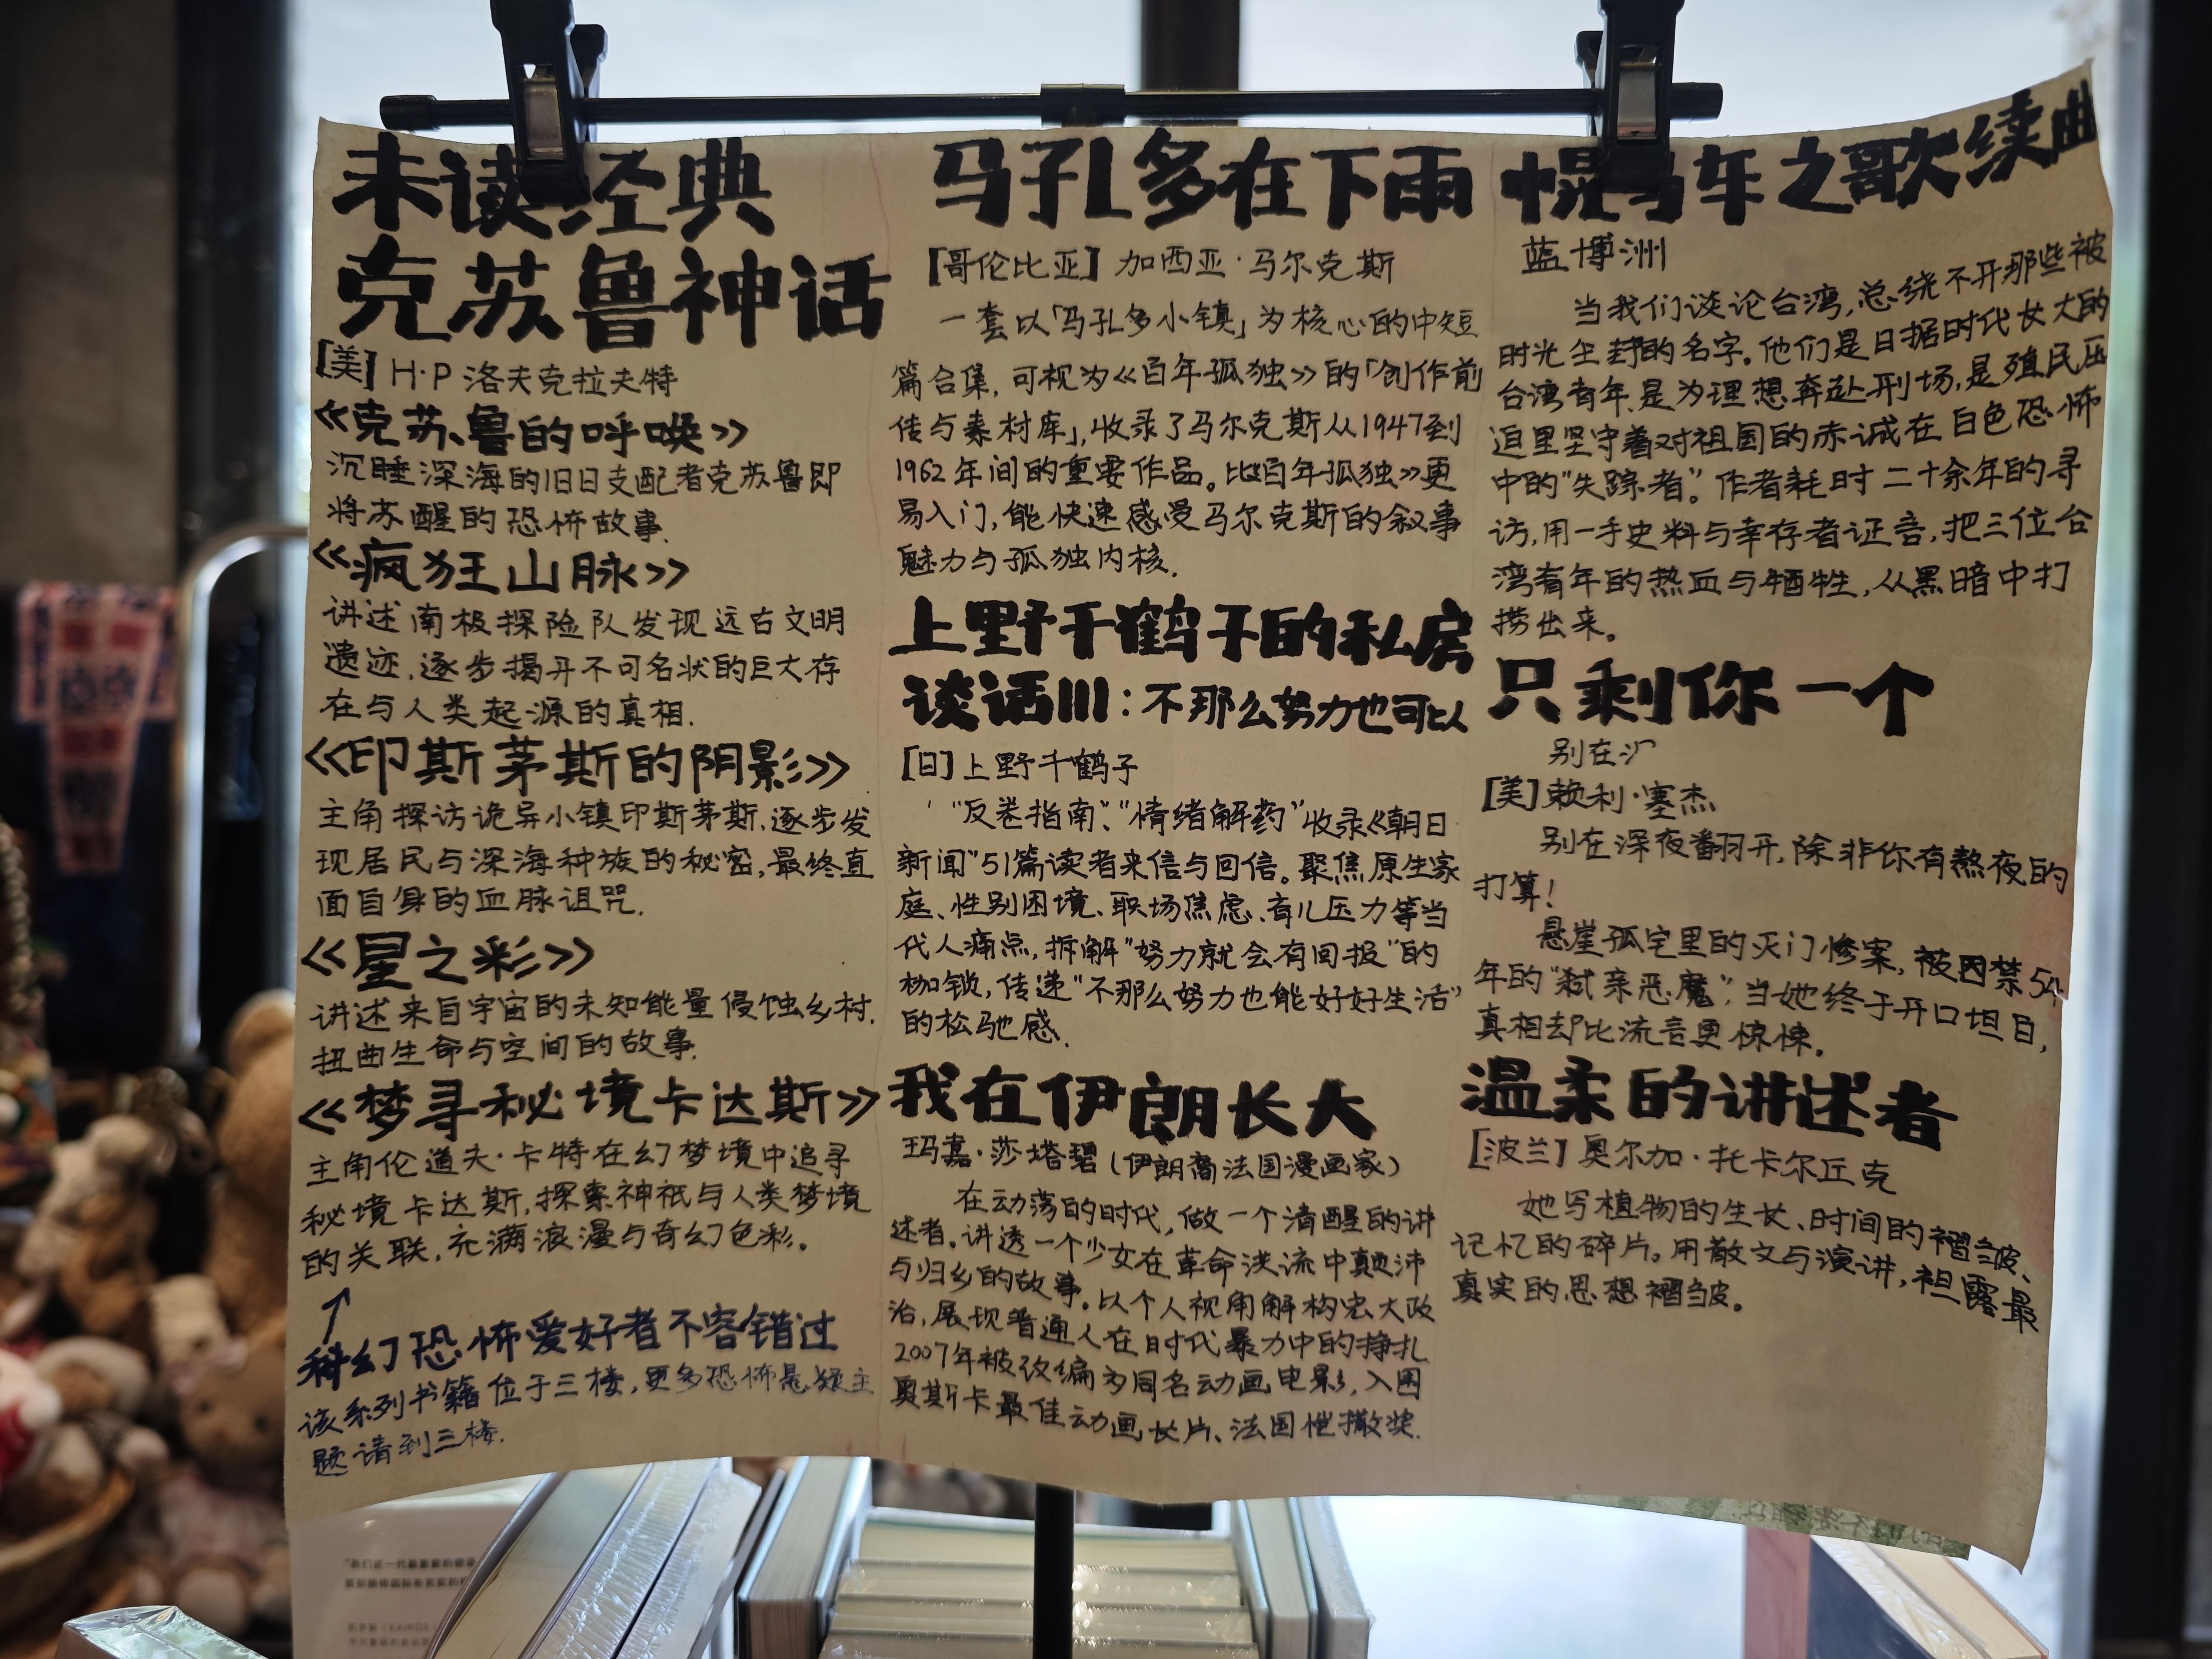 未读经典
克苏鲁神话
[美] H·P 洛夫克拉夫特
《克苏鲁的呼唤》
沉睡深海的旧日支配者克苏鲁即
将苏醒的恐怖故事.
《疯狂山脉》
讲述南极探险队发现远古文明
遗迹,逐步揭开不可名状的巨大存
在与人类起源的真相.
《印斯茅斯的阴影》
主角探访诡异小镇印斯茅斯,逐步发
现居民与深海种族的秘密,最终直
面自身的血脉诅咒.
《星之彩》
讲述来自宇宙的未知能量侵蚀乡村,
扭曲生命与空间的故事.
《梦寻秘境卡达斯》
主角伦道夫·卡特在幻梦境中追寻
秘境卡达斯,探索神祇与人类梦境
的关联,充满浪漫与奇幻色彩。
↑
科幻恐怖爱好者不容错过
该系列书籍位于三楼,更多恐怖悬疑主
题请到三楼.
马孔多在下雨
[哥伦比亚] 加西亚·马尔克斯
一套以「马孔多小镇」为核心的中短
篇合集,可视为《百年孤独》的「创作前
传与素材库」,收录了马尔克斯从1947到
1962年间的重要作品。比《百年孤独》更
易入门,能快速感受马尔克斯的叙事
魅力与孤独内核.
上野千鹤子的私房
谈话III:不那么努力也可以
[日]上野千鹤子
"反卷指南"、"情绪解药"收录《朝日
新闻"51篇读者来信与回信。聚焦原生家
庭、性别困境、职场焦虑、育儿压力等当
代人痛点,拆解"努力就会有回报"的
枷锁,传递"不那么努力也能好好生活"
的松弛感.
我在伊朗长大
玛嘉·莎塔碧(伊朗裔法国漫画家)
在动荡的时代,做一个清醒的讲
述者。讲透一个少女在革命洪流中颠沛
与归乡的故事。以个人视角解构宏大政
治,展现普通人在时代暴力中的挣扎.
2007年被改编为同名动画电影,入围
奥斯卡最佳动画长片、法国恺撒奖.
幌马车之歌续曲
蓝博洲
当我们谈论台湾,总绕不开那些被
时光尘封的名字。他们是日据时代长大的
台湾青年,是为理想奔赴刑场,是殖民压
迫里坚守着对祖国的赤诚在白色恐怖
中的"失踪者"。作者耗时二十余年的寻
访,用一手史料与幸存者证言,把三位台
湾青年的热血与牺牲,从黑暗中打
捞出来。
只剩你一个
别在
[美]赖利·塞杰
别在深夜翻开,除非你有熬夜的
打算!
悬崖孤宅里的灭门惨案,被囚禁54
年的"弑亲恶魔",当她终于开口坦白,
真相却比流言更惊悚。
温柔的讲述者
[波兰] 奥尔加·托卡尔丘克
她写植物的生长、时间的褶皱、
记忆的碎片。用散文与演讲,袒露最
真实的思想褶皱。